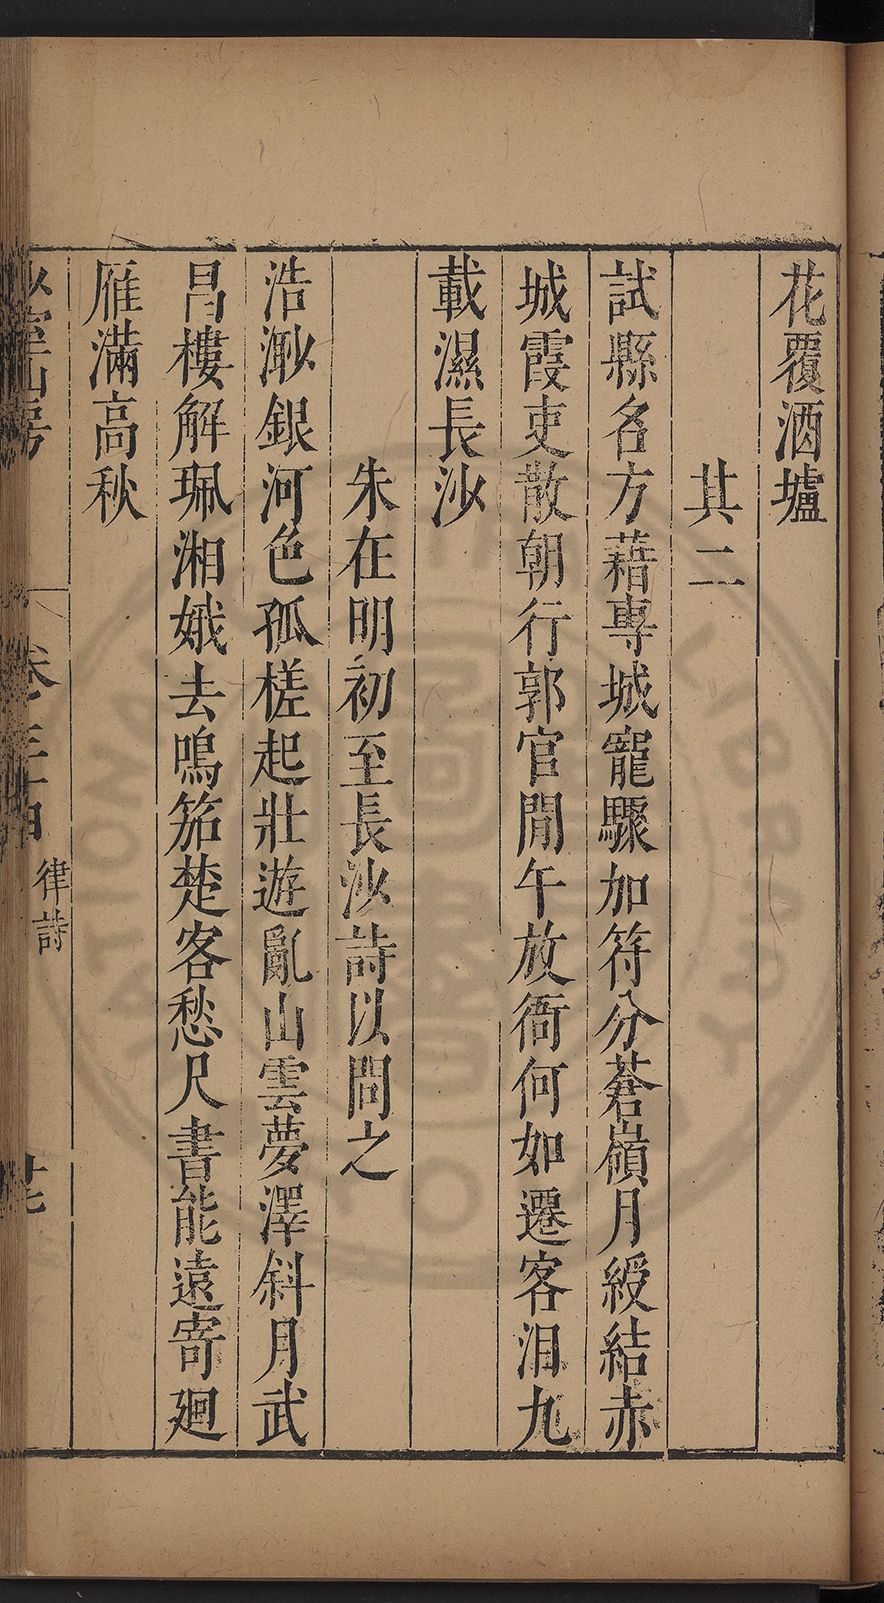 花覆酒壚
其二
試縣名方藉專城寵驟加符分蒼嶺月綬結赤
城霞吏散朝行郭官閒午放衙何如遷客泪九
載濕長沙
朱在明初至長沙詩以問之
浩渺銀河色孤槎起壯遊亂山雲夢澤斜月武
昌樓解珮湘娥去鳴笳楚客愁尺書能遠寄廻
雁滿高秋
山房
卷之三十四
律詩